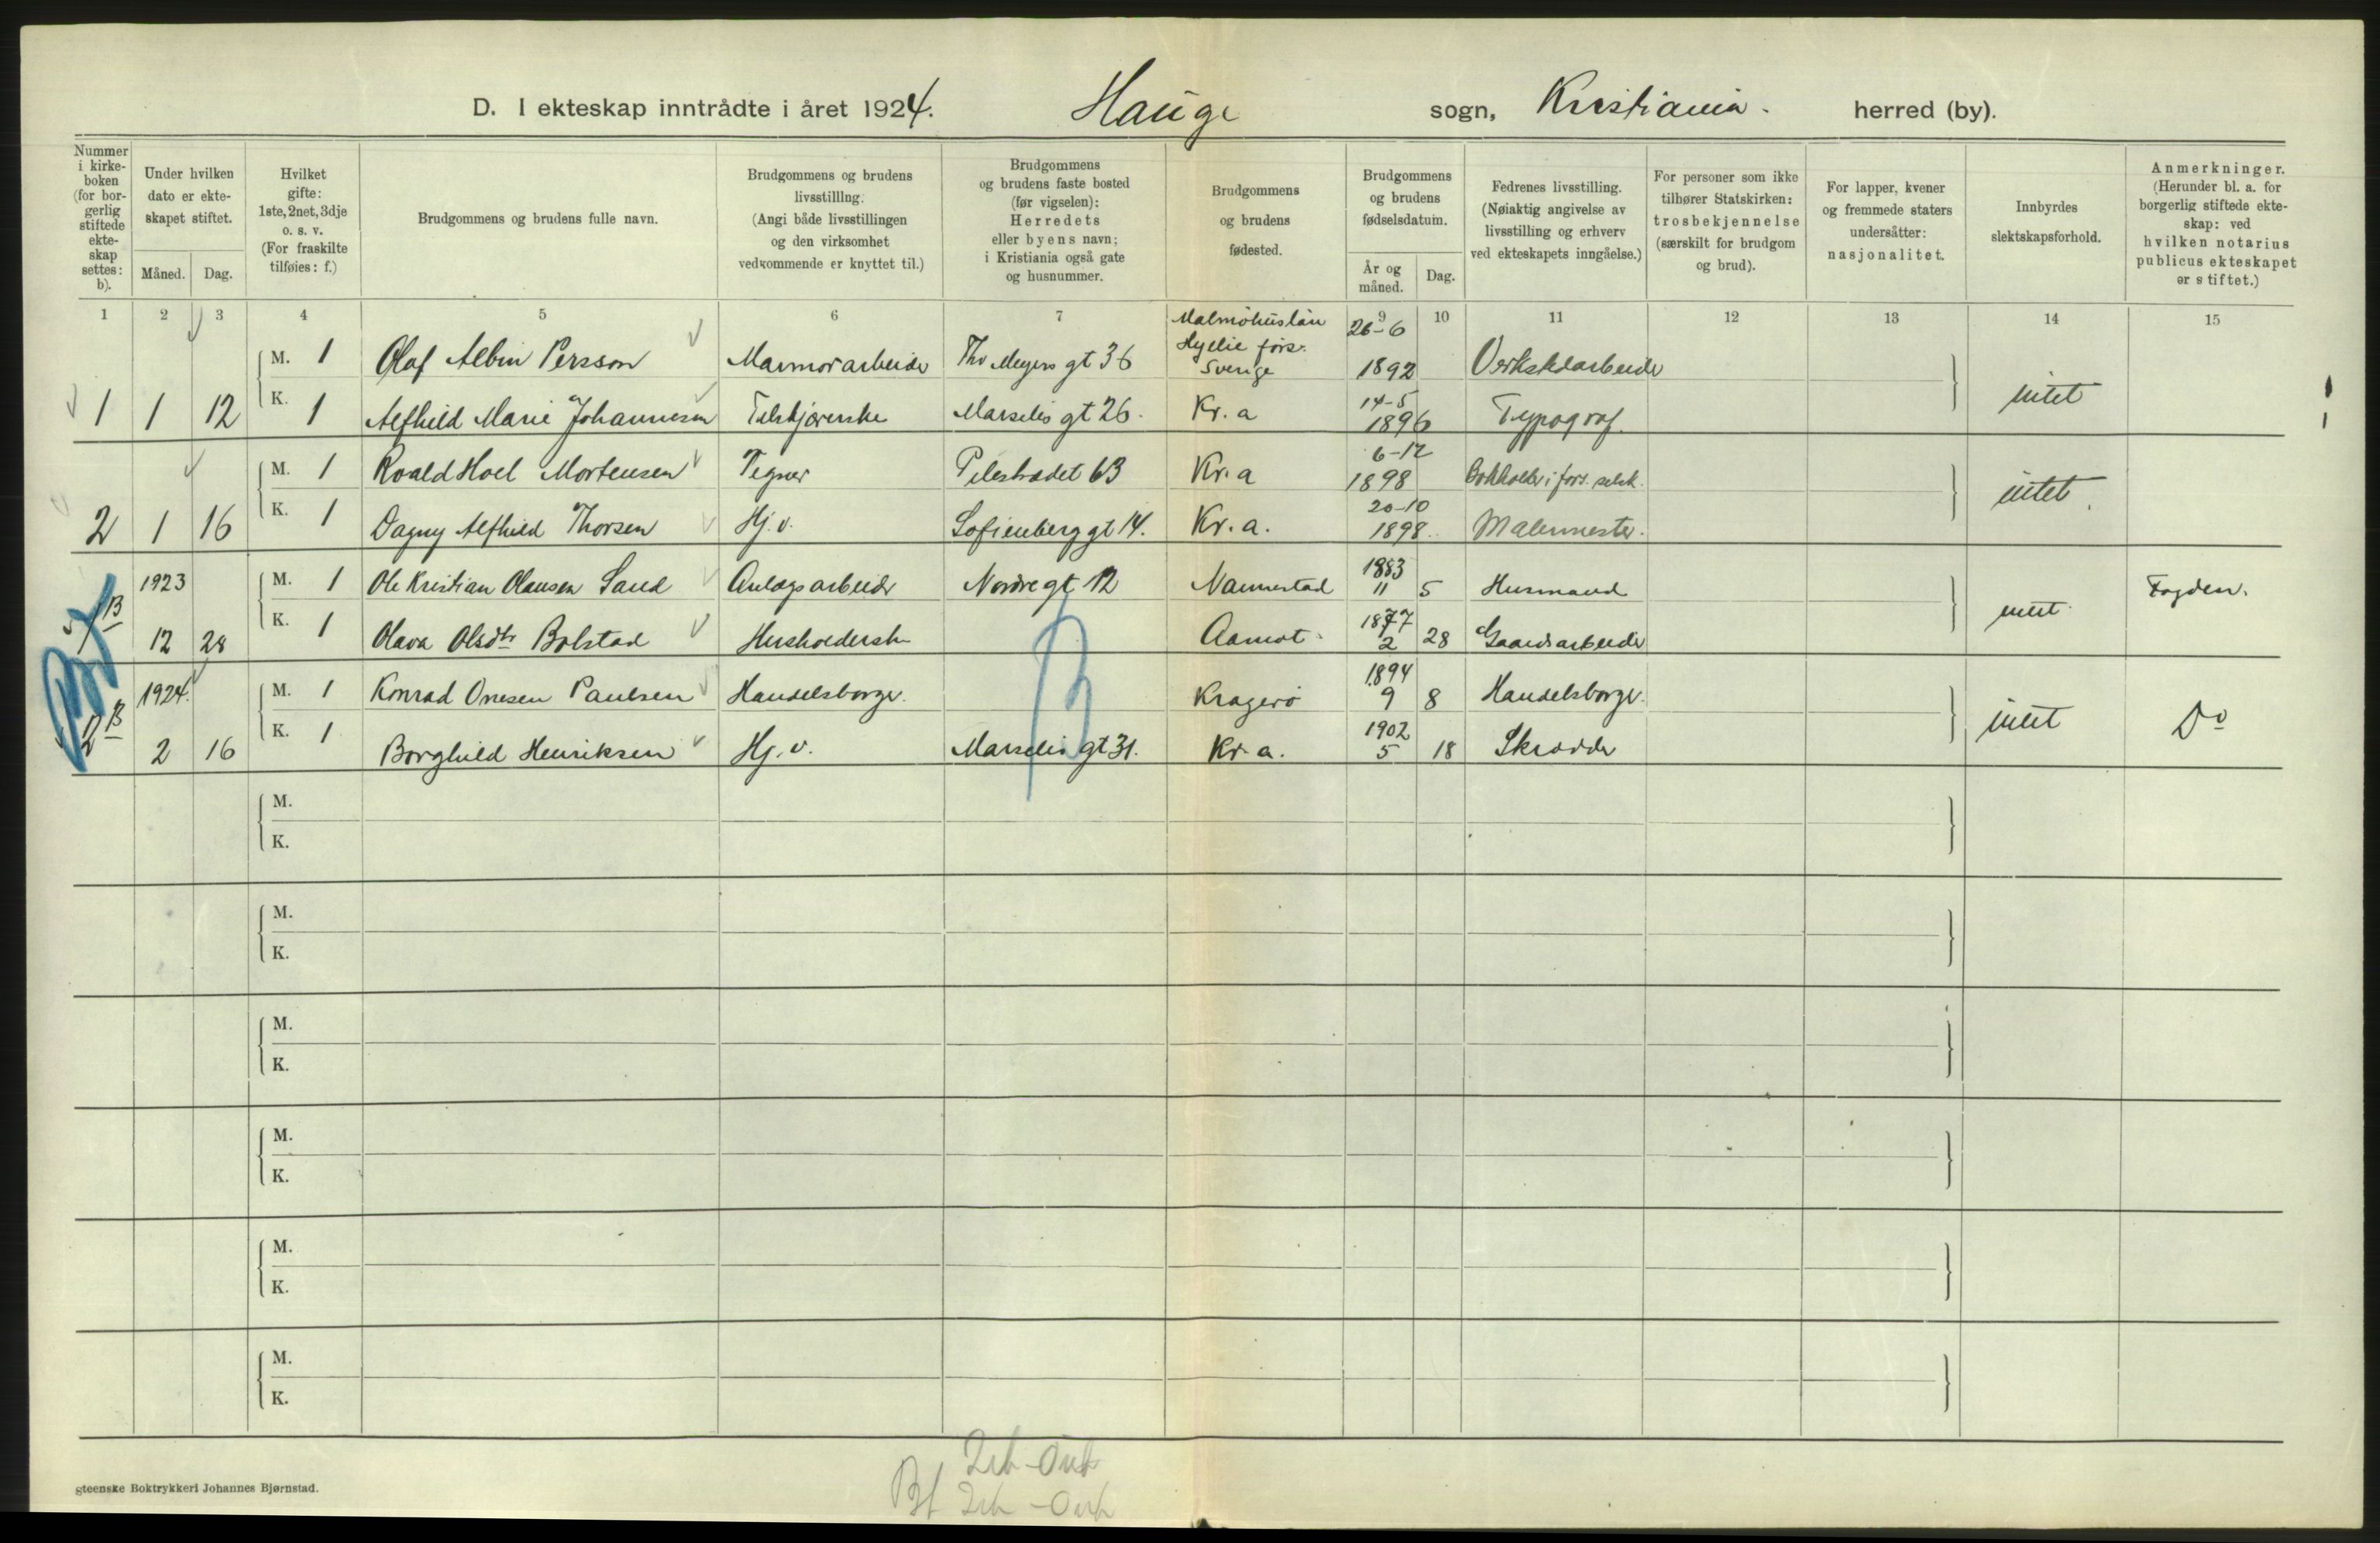 D. I ekteskap inntrådte i året 1924. Hauge sogn, Kristiania. herred (by).
Nummer i kirke-boken (for bor-gerlig stiftede ekte-skap settes: b).
Under hvilken dato er ekte-skapet stiftet.
Måned. Dag.
Hvilket gifte: 1ste, 2net, 3dje o. s. v. (For fraskilte tilføies: f.)
Brudgommens og brudens fulle navn.
Brudgommens og brudens livsstilling. (Angi både livsstillingen og den virksomhet vedkommende er knyttet til.)
Brudgommens og brudens faste bosted (før vigselen): Herredets eller byens navn; i Kristiania også gate og husnummer.
Brudgommens og brudens fødested.
Brudgommens og brudens fødselsdatum.
År og måned. Dag.
Fedrenes livsstilling. (Nøiaktig angivelse av livsstilling og erhverv ved ekteskapets inngåelse.)
For personer som ikke tilhører Statskirken: trosbekjennelse (særskilt for brudgom og brud).
For lapper, kvener og fremmede staters undersåtter: nasjonalitet.
Innbyrdes slektskapsforhold.
Anmerkninger. (Herunder bl. a. for borgerlig stiftede ekte-skap: ved hvilken notarius publicus ekteskapet er stiftet.)
1 2 3 4 5 6 7 8 9 10 11 12 13 14 15
M. 1 Olaf Albin Persson Marmorarbeider Thv Meyers gt 36 Malmöhuslän Hyllie förs. Sverige 26-6 1892 Verkstedarbeider
1 1 12 K. 1 Alfhild Marie Johannesen Telskjærerske Marselis gt 26. Kr. a 14-5 1896 Typograf. intet
M. 1 Roald Hoel Mortensen Tegner Pilestrædet 63 Kr. a 6-12 1898 Bokholder i fors. selsk.
2 1 16 K. 1 Dagny Alfhild Thorsen Hj. v. Sofienberg gt 14. Kr. a. 20-10 1898. Malermester. intet.
1923 M. 1 Ole Kristian Olausen Sand Anlægsarbeider Nordre gt 12 Nannestad 1883 11 5 Husmand Fogden.
1 B 12 28 K. 1 Olava Olsdtr Bolstad Husholderske Aamot 1877 2 28 Gaardsarbeider intet
1924. M. 1 Konrad Onesen Paulsen Handelsborger. Kragerö 1894 9 8 Handelsborger.
2 B 2 16 K. 1 Borghild Henriksen Hj. v. Marselis gt 31. Kr. a. 1902 5 18 Skrædder intet Do
B
M.
K.
M.
K.
M.
K.
M.
K.
M.
K.
M.
K.
gteenske Boktrykkeri Johannes Bjørnstad.